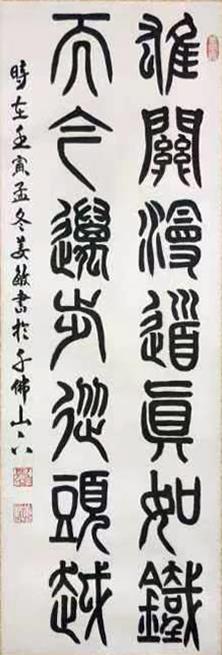 雄關漫道眞如鐵
而今邁步從頭越
時在壬寅孟冬姜敏書於千佛山下